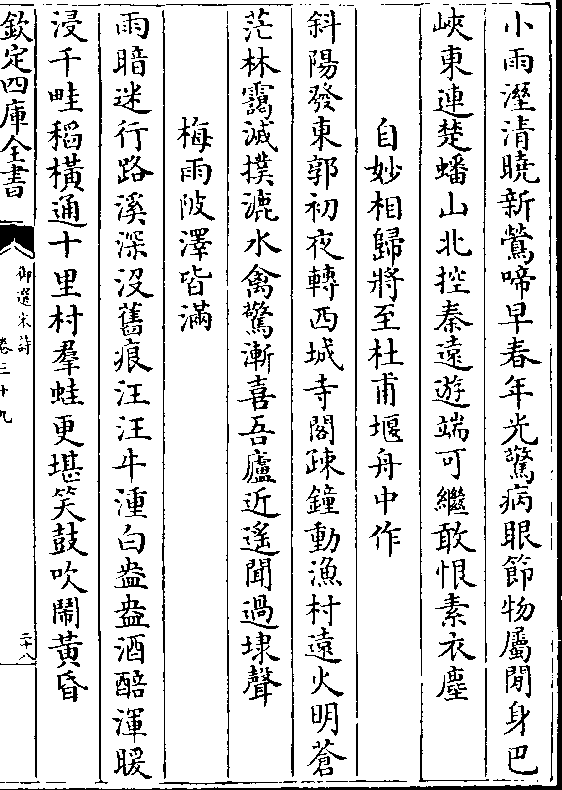 小雨溼清曉新鶯啼早春年光驚病眼節物屬閒身巴
峽東連楚蟠山北控秦遠遊端可繼敢恨素衣塵
自妙相歸將至杜甫堰舟中作
斜陽發東郭初夜轉西城寺閣疎鐘動漁村遠火明蒼
茫林靄滅撲漉水禽驚漸喜吾廬近遙聞過埭聲
梅雨陂澤皆滿
雨暗迷行路溪深沒舊痕汪汪牛湩白盎盎酒醅渾暖
浸千畦稻橫通十里村羣蛙更堪笑鼓吹鬧黃昏
欽定四庫全書
御選宋詩
卷三十九
二十八